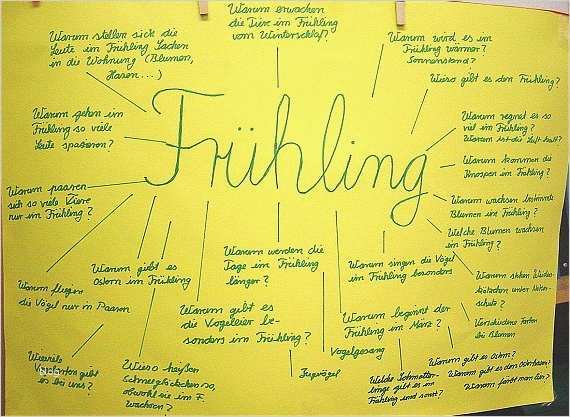 Warum erwachen
die Tiere im Frühling
vom Winterschlaf?
Warum stellen sich die
Leute im Frühling Sachen
in die Wohnung (Blumen,
Hasen...)
Warum wird es im
Frühling wärmer?
Sonnenstand?
Wieso gibt es den Frühling?
Warum gehen im
Frühling so viele
Leute spazieren?
Frühling
Warum regnet es so
viel im Frühling?
Warum ist die Luft kalt?
Warum kommen die
Knospen im Frühling?
Warum paaren
sich so viele Tiere
nur im Frühling?
Warum wachsen bestimmte
Blumen im Frühling?
Welche Blumen wachsen
im Frühling?
Warum gibt es
Ostern im Frühling
Warum werden die
Tage im Frühling
länger?
Warum singen die Vögel
im Frühling besonders
Warum stehen
kätzchen unter Natur-
schutz?
Warum fliegen
die Vögel nur in Paaren
Warum gibt es
die Vogeleier be-
sonders im Frühling?
Warum beginnt der
Frühling im März?
Verschiedene Farben
bei Blumen
Vogelgesang
Wieviele
gibt
es bei uns?
Wieso heißen
Schneeglöckchen so,
obwohl sie im F.
wachsen?
Zugvögel
Welche Schmetter-
linge gibt es im
Frühling und sonst?
Warum gibt es Ostern?
Warum gibt es den Osterhasen?
Warum färbt man Eier?